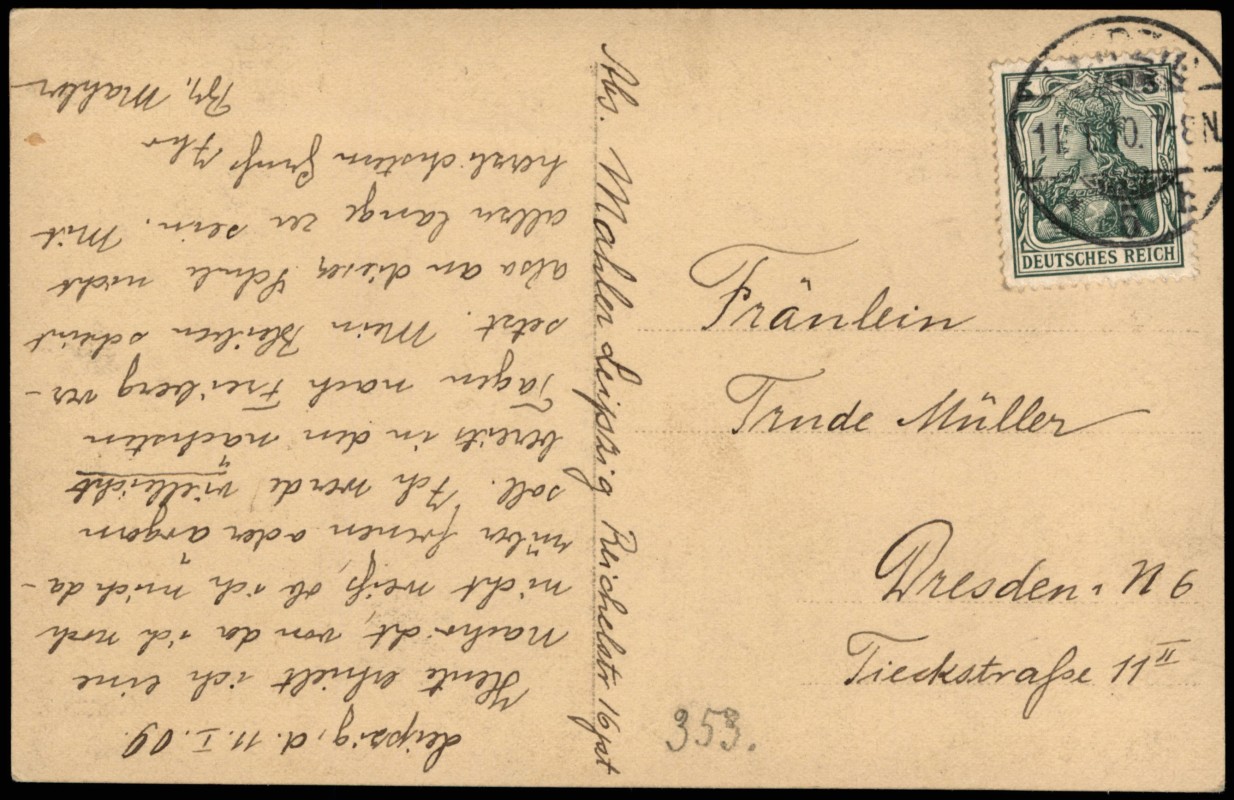 Leipzig, d. 11. I. 09.
Heute erhielt ich eine
nachricht, von da ich noch
nicht weiß, ob ich mich da-
rüber freuen oder ärgern
soll. Ich werde "vielleicht"
bereits in den nächsten
Tagen nach Freiberg ver-
setzt. Mein Bleiben scheint
also an dieser Schule nicht
allzu lange zu sein. Mit
herzlichsten Gruß Ihr
Mahler
Abs. Mahler Leipzig Reichelstr 16 pt
DEUTSCHES REICH
5
5
LEIPZIG
11. 1. 10. 7-8N.
Fräulein
Trude Müller
Dresden-N 6
Tieckstraße 11 II
353.